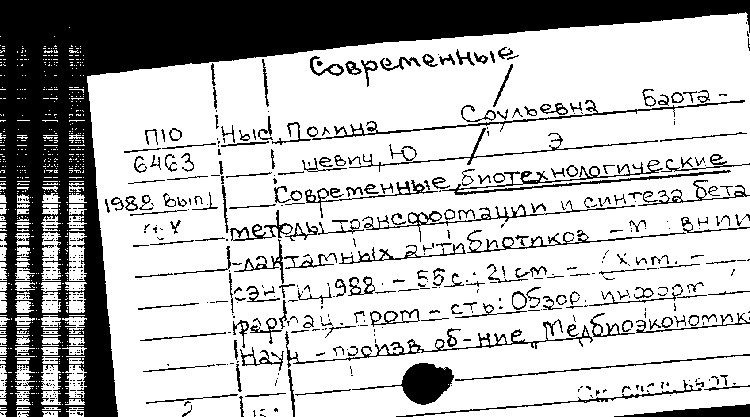 Современные
П10 Ныс, Полина Саульевна, Барта-
6463 шевич, Ю Э
1988 Вып1 Современные биотехнологические
методы трансформации и синтеза бета
-лактамных антибиотиков - М : ВНИИ
СЭНТИ, 1988. - 55 с.; 21 см. - (Хим. -
фармац. пром-сть: Обзор. информ
Науч - произв об-ние "Медбиоэкономика
2